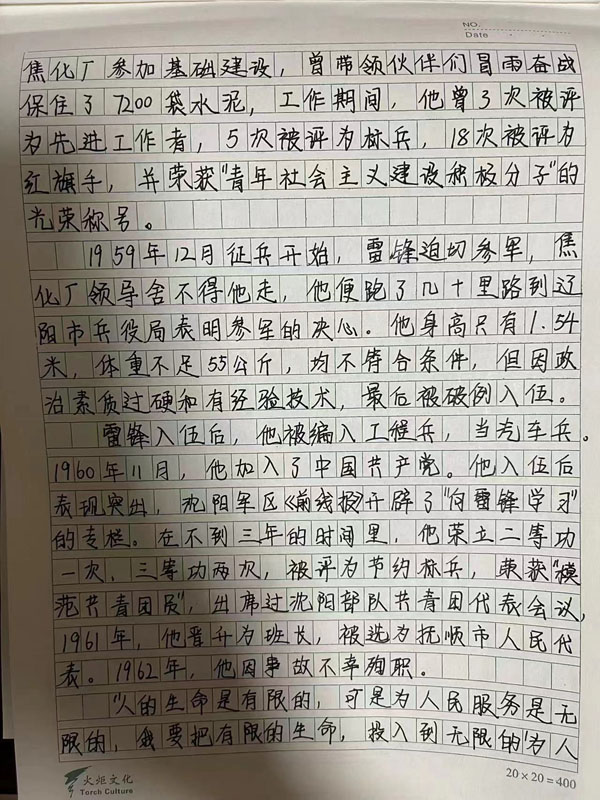 NO.
Date
焦化厂参加基础建设，曾带领伙伴们冒雨奋战
保住了7200袋水泥，工作期间，他曾3次被评
为先进工作者，5次被评为标兵，18次被评为
红旗手，并荣获"青年社会主义建设积极分子"的
光荣称号。
1959年12月征兵开始，雷锋迫切参军，焦
化厂领导舍不得他走，他便跑了几十里路到辽
阳市兵役局表明参军的决心。他身高只有1.54
米，体重不足55公斤，均不符合条件，但因政
治素质过硬和有经验技术，最后被破例入伍。
雷锋入伍后，他被编入工程兵，当汽车兵。
1960年11月，他加入了中国共产党。他入伍后
表现突出，沈阳军区《前线报》开辟了"向雷锋学习"
的专栏。在不到三年的时间里，他荣立二等功
一次，三等功两次，被评为节约标兵，荣获"模
范共青团员"，出席过沈阳部队共青团代表会议，
1961年，他晋升为班长，被选为抚顺市人民代
表。1962年，他因事故不幸殉职。
"人的生命是有限的，可是为人民服务是无
限的，我要把有限的生命，投入到无限的'为人
火炬文化
Torch Culture
20×20=400